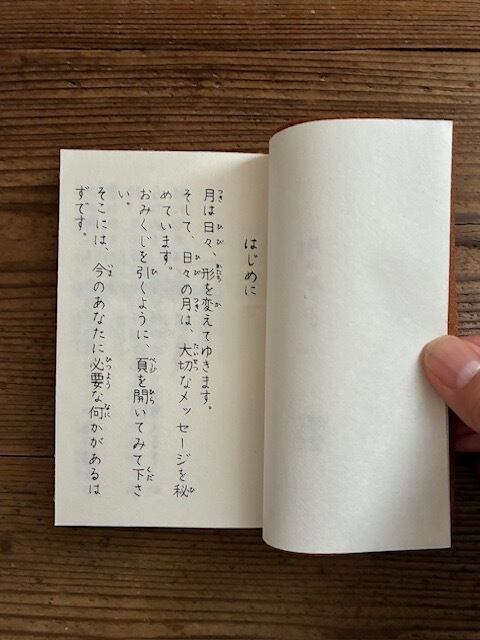 はじめに
月は日々、形を変えてゆきます。
そして、日々の月は、大切なメッセージを秘
めています。
おみくじを引くように、頁を開いてみて下さ
い。
そこには、今のあなたに必要な何かがあるは
ずです。